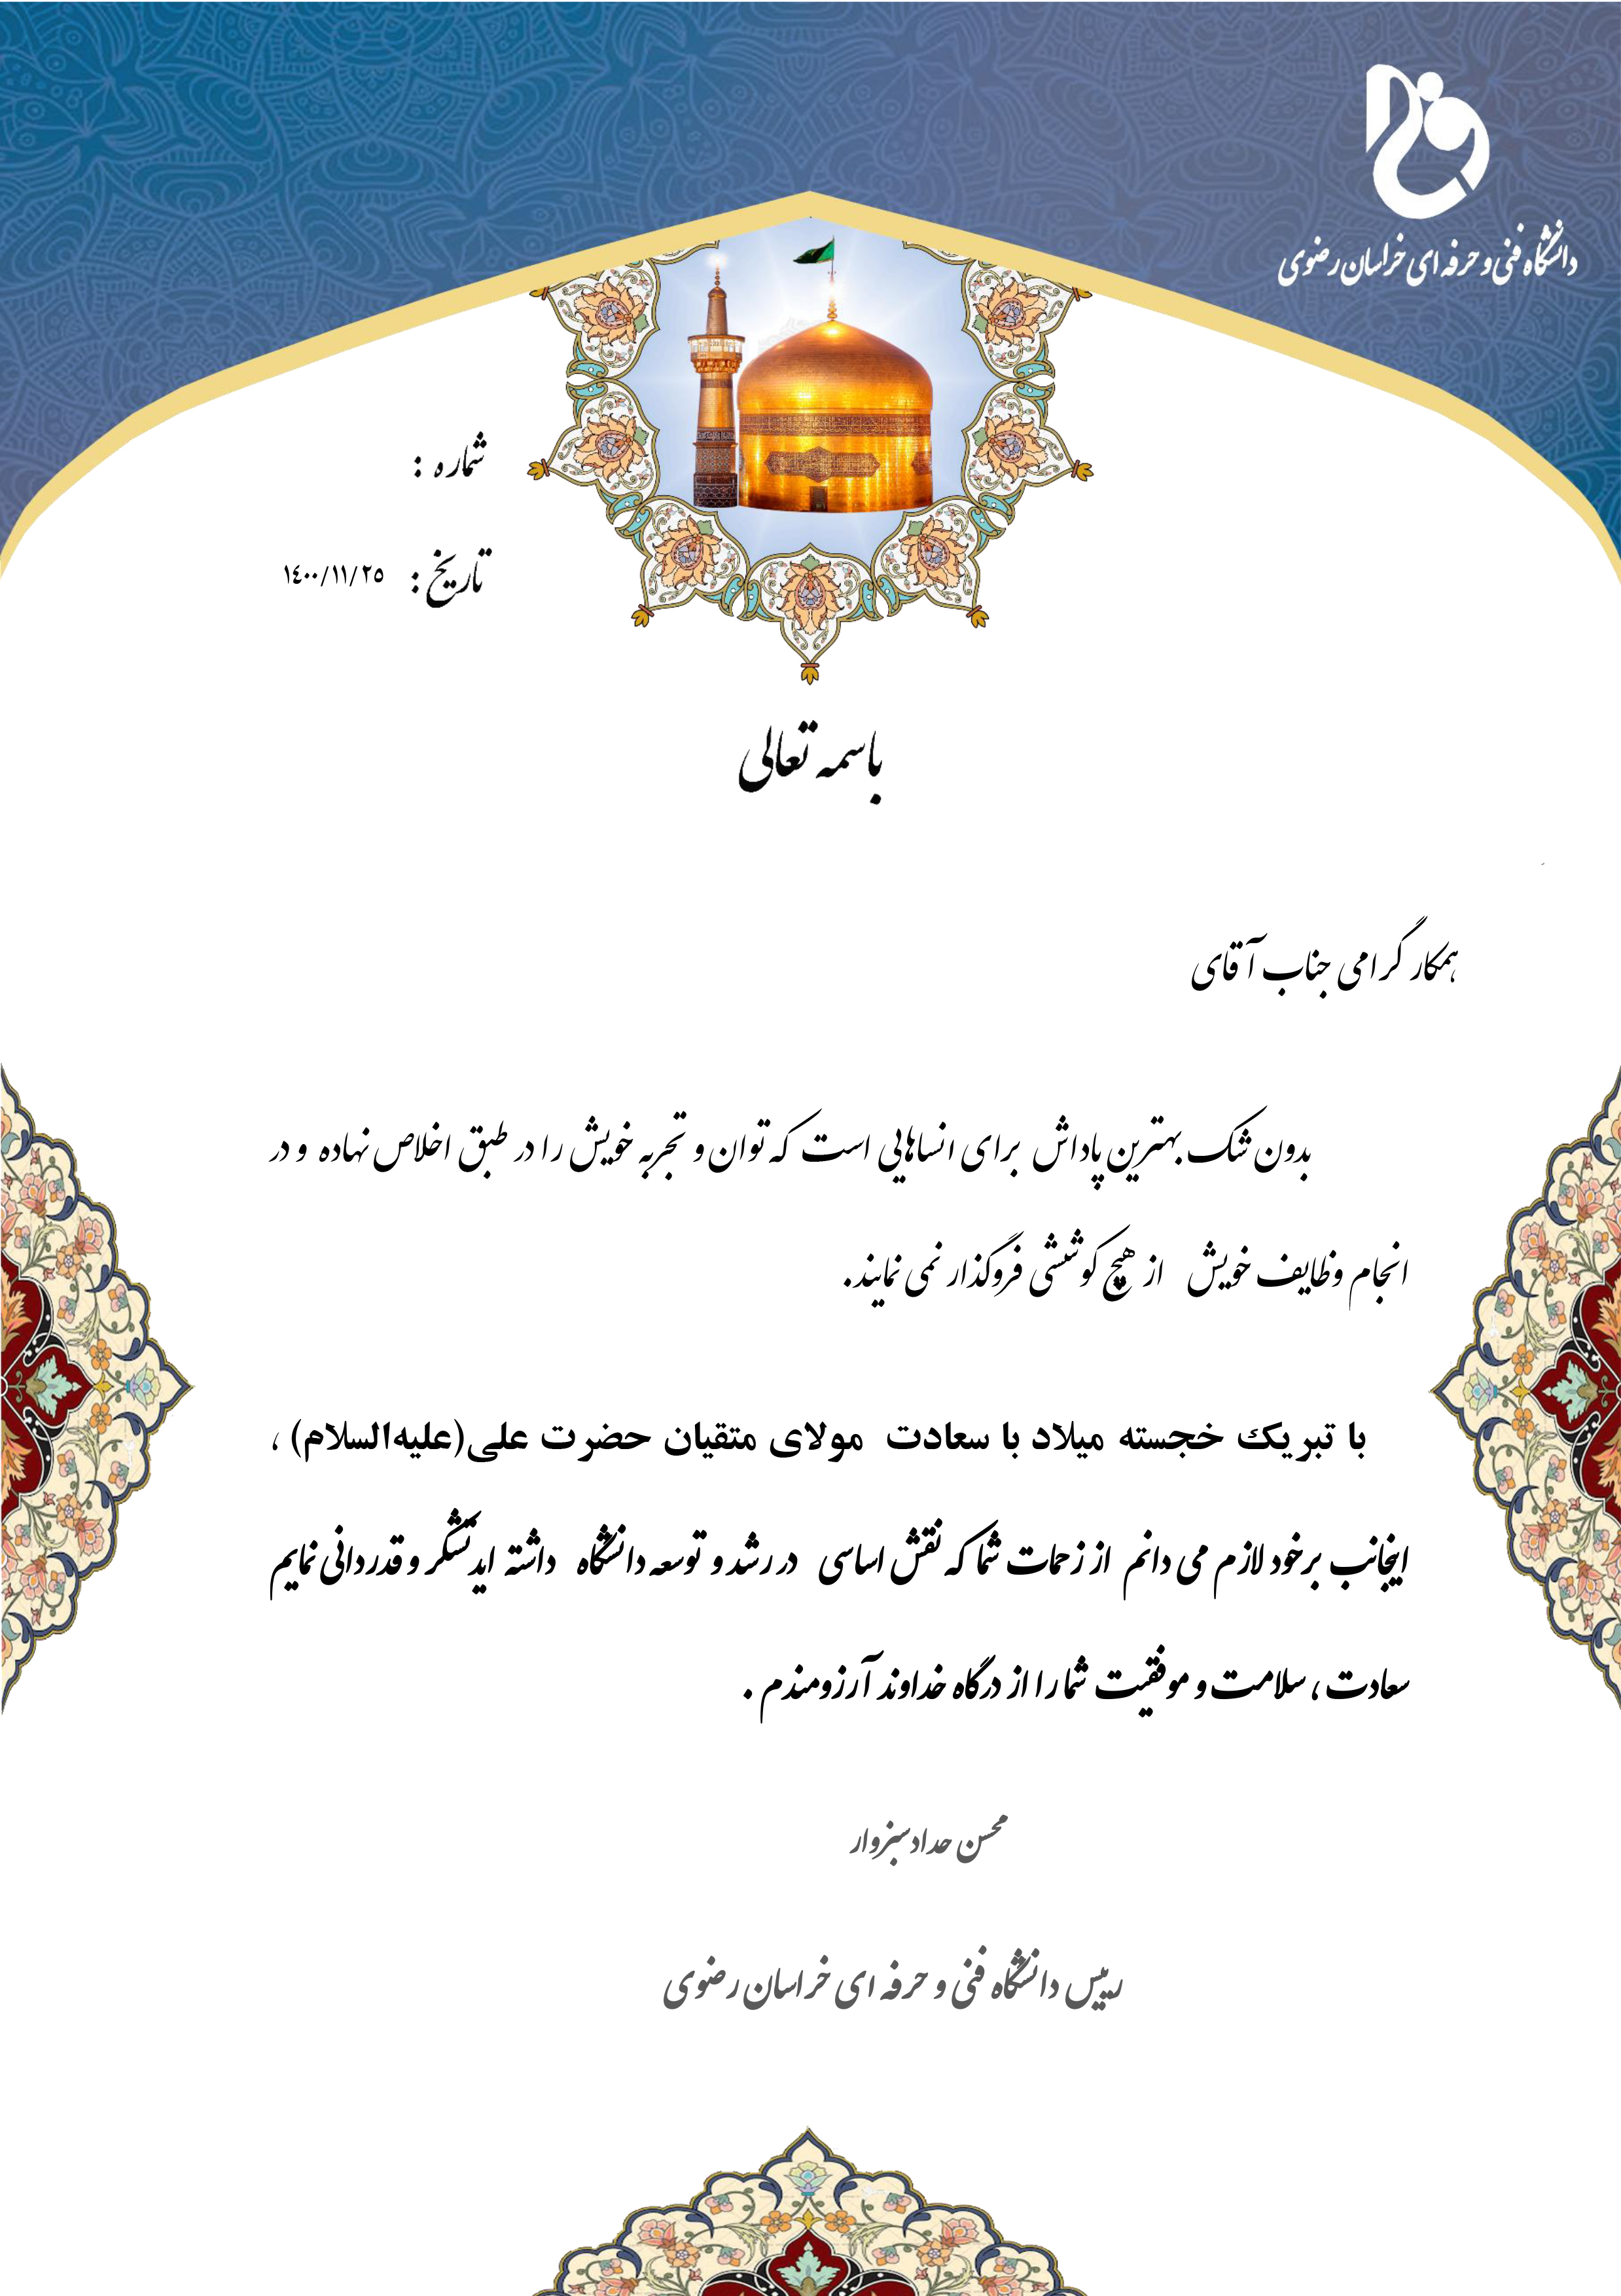 دانشگاه فنی و حرفه ای خراسان رضوی
شماره :
تاریخ : ۱٤۰۰/۱۱/۲۵
باسمه تعالی
همکار گرامی جناب آقای
بدون شک بهترین پاداش برای انسانهایی است که توان و تجربه خویش را در طبق اخلاص نهاده و در
انجام وظایف خویش از هیچ کوششی فروگذار نمی نمایند.
با تبریک خجسته میلاد با سعادت مولای متقیان حضرت علی(علیه‌السلام) ،
اینجانب برخود لازم می دانم از زحمات شما که نقش اساسی در رشد و توسعه دانشگاه داشته اید تشکر و قدردانی نمایم
سعادت ، سلامت و موفقیت شما را از درگاه خداوند آرزومندم .
محسن حدادسبزوار
رییس دانشگاه فنی و حرفه ای خراسان رضوی